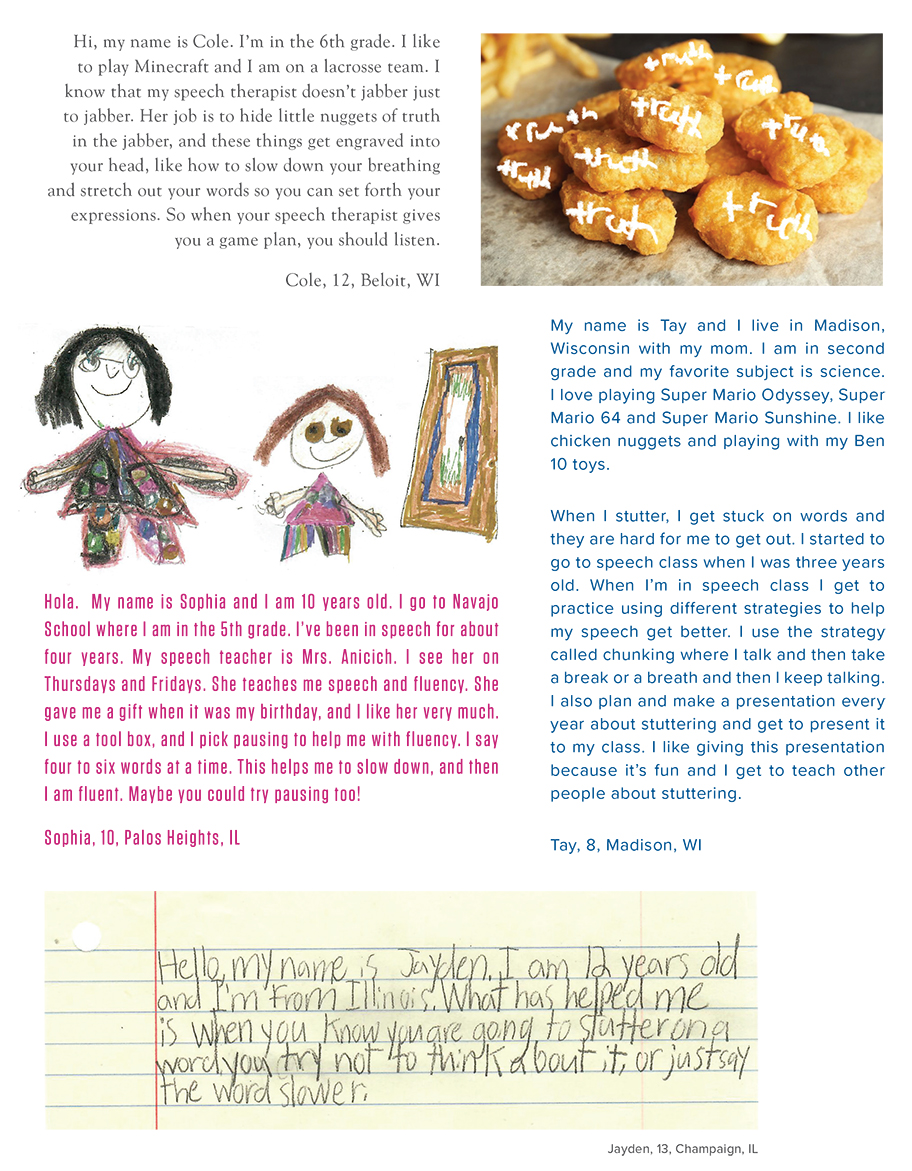 Hi, my name is Cole. I'm in the 6th grade. I like
to play Minecraft and I am on a lacrosse team. I
know that my speech therapist doesn't jabber just
to jabber. Her job is to hide little nuggets of truth
in the jabber, and these things get engraved into
your head, like how to slow down your breathing
and stretch out your words so you can set forth your
expressions. So when your speech therapist gives
you a game plan, you should listen.
Cole, 12, Beloit, WI
truth
truth
truth
truth
truth
truth
truth
truth
truth
My name is Tay and I live in Madison,
Wisconsin with my mom. I am in second
grade and my favorite subject is science.
I love playing Super Mario Odyssey, Super
Mario 64 and Super Mario Sunshine. I like
chicken nuggets and playing with my Ben
10 toys.
When I stutter, I get stuck on words and
they are hard for me to get out. I started to
go to speech class when I was three years
old. When I'm in speech class I get to
practice using different strategies to help
my speech get better. I use the strategy
called chunking where I talk and then take
a break or a breath and then I keep talking.
I also plan and make a presentation every
year about stuttering and get to present it
to my class. I like giving this presentation
because it's fun and I get to teach other
people about stuttering.
Tay, 8, Madison, WI
Hola. My name is Sophia and I am 10 years old. I go to Navajo
School where I am in the 5th grade. I've been in speech for about
four years. My speech teacher is Mrs. Anicich. I see her on
Thursdays and Fridays. She teaches me speech and fluency. She
gave me a gift when it was my birthday, and I like her very much.
I use a tool box, and I pick pausing to help me with fluency. I say
four to six words at a time. This helps me to slow down, and then
I am fluent. Maybe you could try pausing too!
Sophia, 10, Palos Heights, IL
Hello, my name is Jayden. I am 12 years old
and I'm from Illinois. What has helped me
is when you know you are going to stutter on a
word you try not to think about it, or just say
the word slower.
Jayden, 13, Champaign, IL